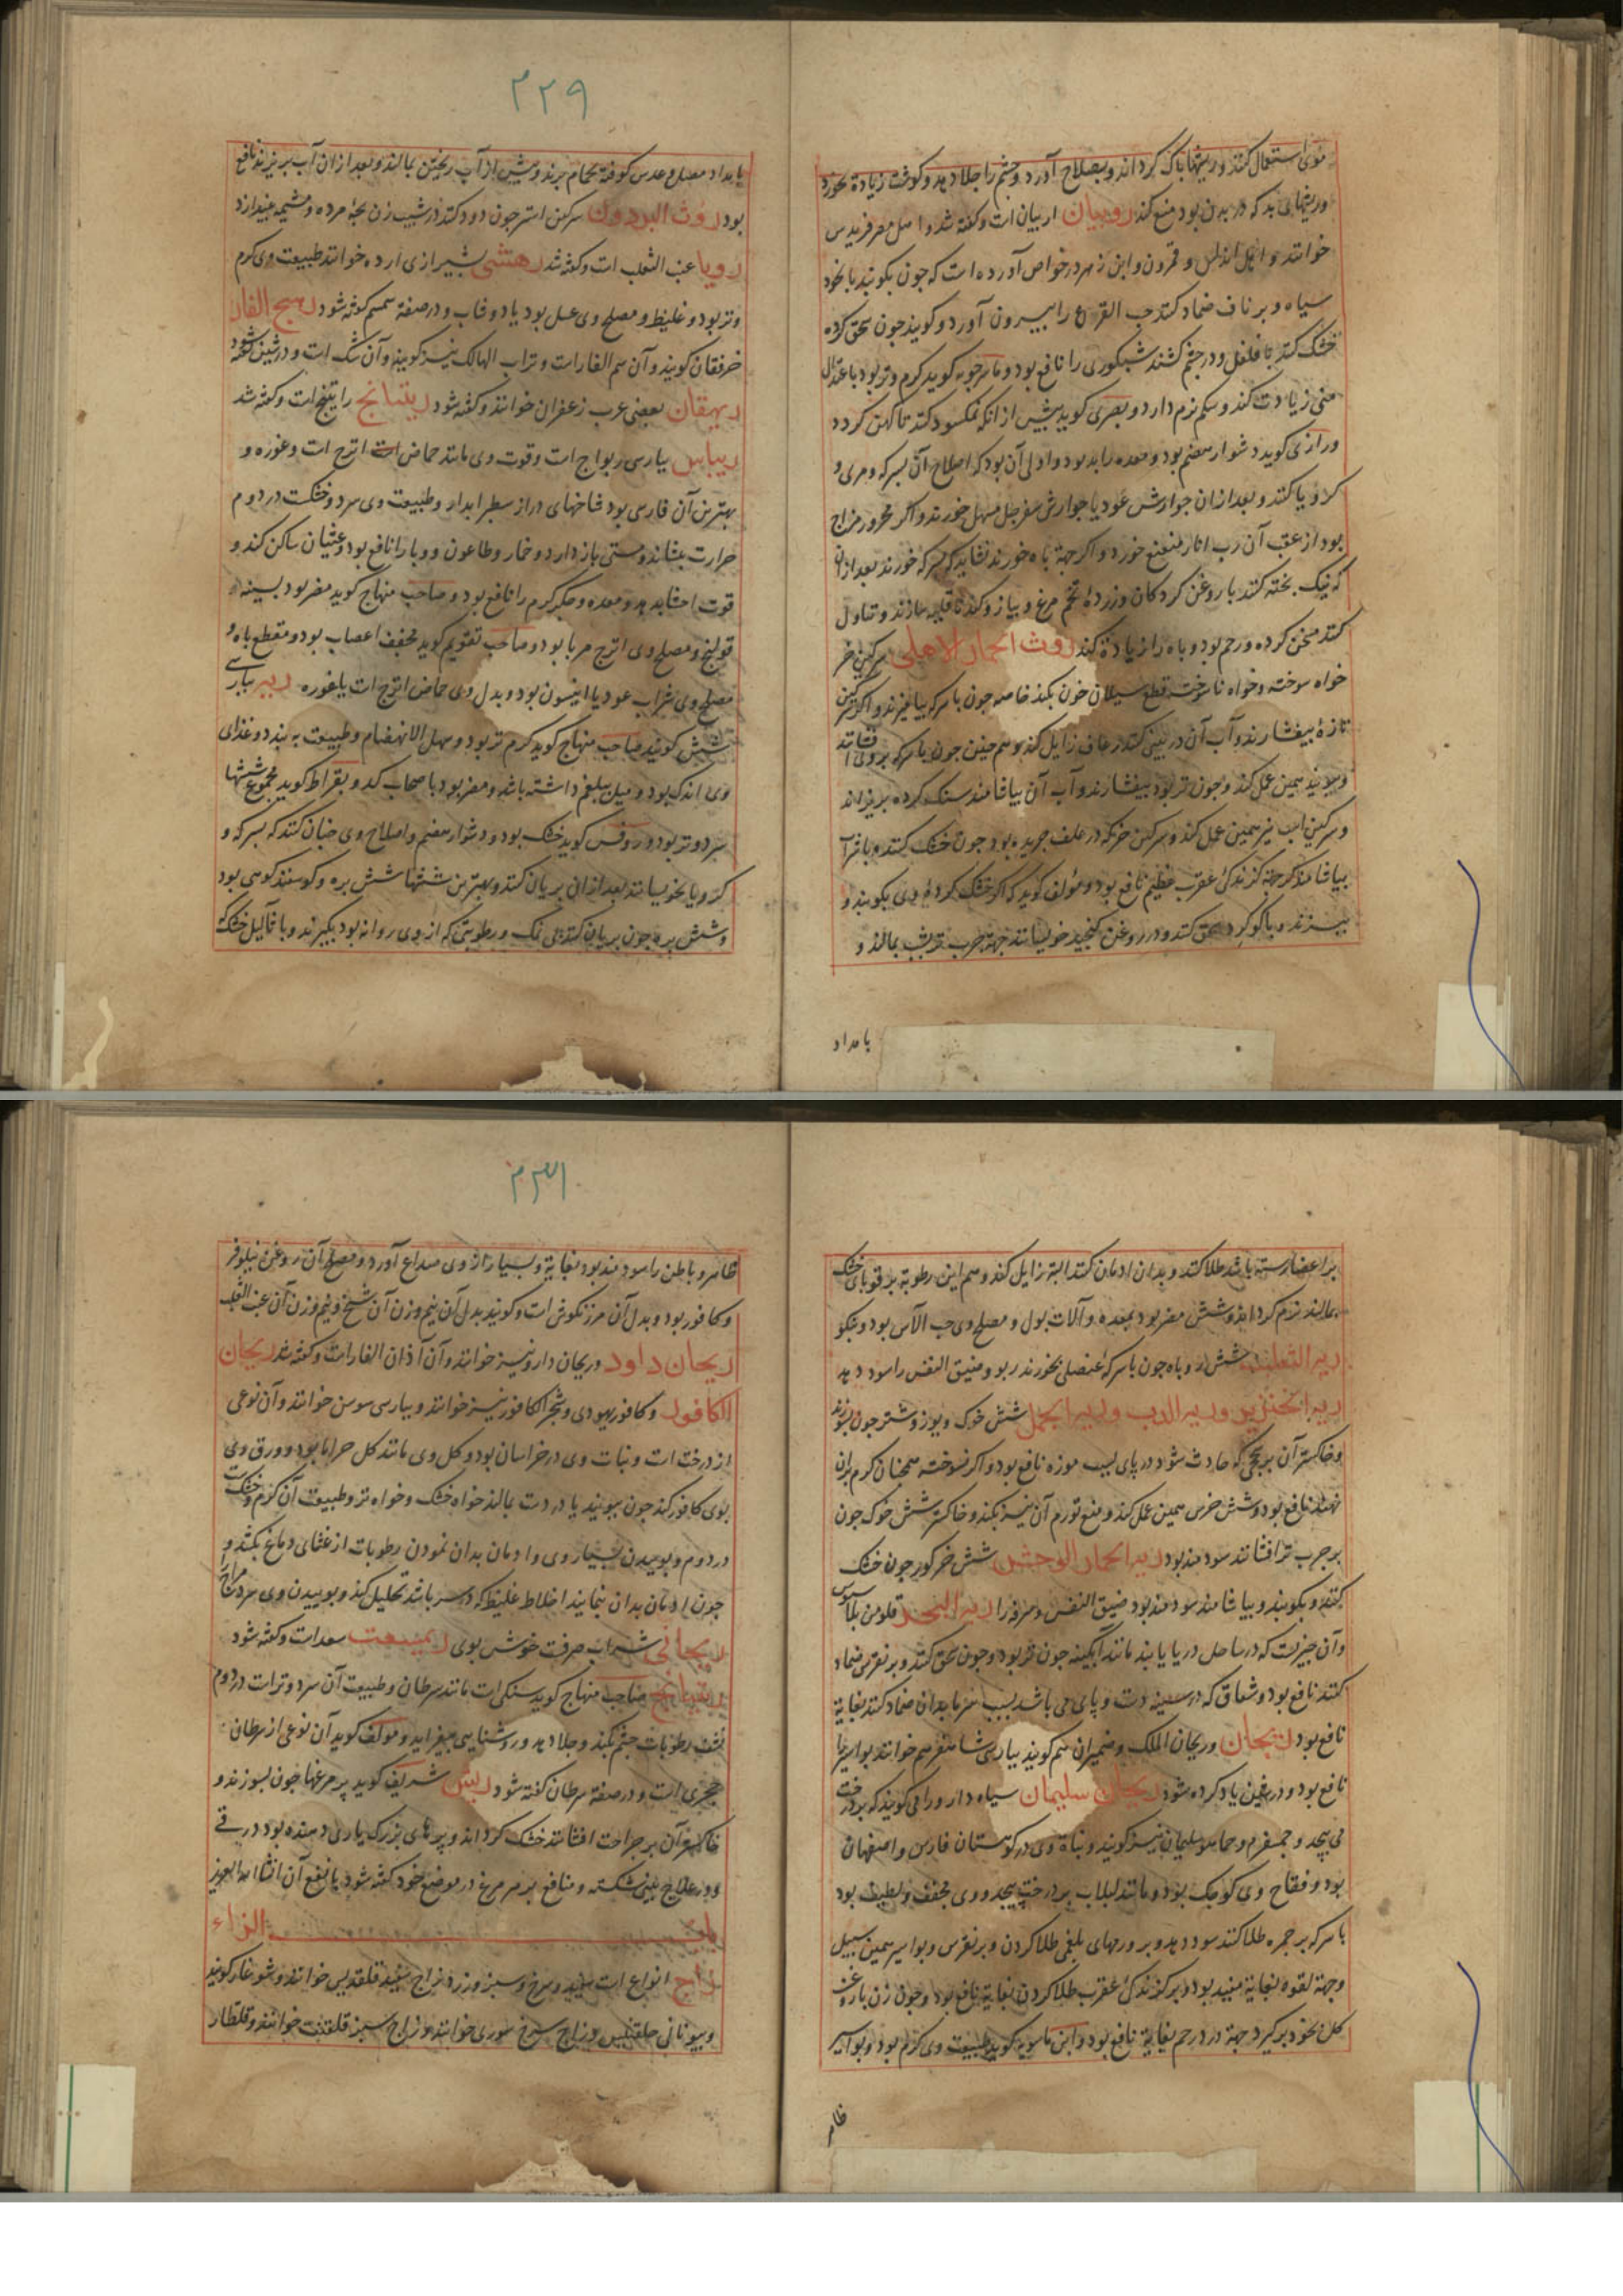 قوی استعمال کنند و ریشها پاک گرداند و بصلاح آورد و چشم را جلا دهد و گوشت زیادة بخورد
و ریشهای بد که در بدن بود منع کند روبیان اربیان است و گفته شد و اهل مصر فریدس
خوانند و اهل اندلس و قمرون و ابن زهر در خواص آورده است که چون بکوبند با نخود
سیاه و بر ناف ضماد کنند حب القرع را بیرون آورد و گویند چون سحق کرده
خشک کنند با فلفل و در چشم کشند شبکوری را نافع بود و ماسرجویه گوید گرم و تر بود باعتدال
منی زیادت کند و شکم نرم دارد و بصری گوید پیش از آنکه نمکسود کنند تا کهن گردد
و رازی گوید دشوار هضم بود و معده را بد بود و اولی آن بود که اصلاح آن بسرکه و مری و
کرویا کنند و بعد از آن جوارش عود یا جوارش سفرجل مسهل خورند و اگر محرور مزاج
بود از عقب آن رب انار منعنع خورد و اگر جهة باه خورند نشاید که بسرکه خورند بعد از آن
که نیک پخته کنند با روغن گردکان و زرده تخم مرغ و پیاز و گندنا قلیه سازند و تناول
کنند مسخن گرده و رحم بود و باه را زیاده کند روث الحمار الاهلی سرکین خر
خواه سوخته و خواه ناسوخته قطع سیلان خون بکند خاصه چون با سرکه بیامیزند و اگر سرکین
تازه بیفشارند و آب آن در بینی کنند رعاف زایل کند و هم چنین چون با سرکه بروی افشانند
و ببویند همین عمل کند و چون تر بود بیفشارند و آب آن بیاشامند سنگ گرده بریزاند
و سرکین اسب نیز همین عمل کند و سرکین خر که در علف چریده بود چون خشک کنند و با شراب
بیاشامند جهة گزندگی عقرب عظیم نافع بود و مؤلف گوید که اگر خشک کرده وی بکوبند و
ببیزند و با گوگرد سحق کنند و در روغن کنجید خویسانند جهة جرب شب بمالند و
بامداد
۲۲۹
بامداد مصلح عدس کوفته بحمام برند و پیش از آب ریختن بمالند و بعد از آن آب بریزند نافع
بود روث البرذون سرکین استر چون دود کنند در شیب زن بچه مرده و مشیمه بیندازد
رویا عنب الثعلب است و گفته شد رهشی بشیرازی ارده خوانند طبیعت وی گرم
و تر بود و غلیظ و مصلح وی عسل بود یا دوشاب و در صفة سمسم گفته شود رهج الفار
خرفقان گویند و آن سم الفار است و تراب الهالک نیز گویند و آن شک است و در شین گفته شود
ریهقان بعضی عرب زعفران خوانند و گفته شود ریتیانج راتینج است و گفته شد
ریباس بپارسی ریواج است و قوت وی مانند حماض اترج است و غوره و
بهترین آن فارسی بود شاخهای دراز سطبر ابدار و طبیعت وی سرد و خشکست در دوم
حرارت بنشاند و مستی باز دارد و خمار و طاعون و وبا را نافع بود و غثیان ساکن کند و
قوت احشا بدهد و معده و جگر گرم را نافع بود و صاحب منهاج گوید مضر بود بسینه و
قولنج و مصلح وی اترج مربا بود و صاحب تقویم گوید مجفف اعصاب بود و مقطع باه و
مصلح وی شراب عود یا انیسون بود و بدل وی حماض اترج است یا غوره ریه بپارسی
شش گویند صاحب منهاج گوید گرم تر بود و سهل الانهضام و طبیعت به بندد و غذای
وی اندک بود و میل ببلغم داشته باشد و مضر بود باصحاب کد و بقراط گوید مجموع ششها
سرد و تر بود و روفس گوید خشک بود و دشوار هضم و اصلاح وی چنان کنند که بسرکه و
کرویا بخویسانند بعد از آن بریان کنند و بهترین ششها شش بره و گوسفند کوهی بود
و شش بره چون بریان کنند بی نمک و رطوبتی که از وی روانه بود بگیرند و با ثآلیل خشک
بر اعضا رسته باشد طلا کنند و بدان ادمان کنند البته زایل کند و هم این رطوبة بر قوبای خشک
بمالند نرم گرداند و شش مضر بود بمعده و آلات بول و مصلح وی حب الآس بود و نیکو
ریه الثعلب شش روباه چون با سرکه عنصلی بخورند ربو و ضیق النفس را سود دهد
ریه الخنزیر و ریه الدب و ریه الجمل شش خوک و یوز و شتر چون بسوزند
و خاکستر آن بر سحجی که حادث شود در پای بسبب موزه نافع بود و اگر نسوخته همچنان گرم بران
نهند نافع بود و شش خرس همین عمل کند و منع تورم آن نیز بکند و خاکستر شش خوک چون
بر جرب تر افشانند سودمند بود ریه الحمار الوحشی شش خر گور چون خشک
کنند و بکوبند و بیاشامند سودمند بود ضیق النفس و سرفه را ریه البحر
و آن چیزیست که در ساحل دریا یابند مانند آبگینه چون تر بود و چون سحق کنند و بر نقرس ضماد
کنند نافع بود و شقاق که در سینه دست و پای می باشد بسبب سرما بدان ضماد کنند بغایة
نافع بود ریحان و ریحان الملک و ضمیران هم گویند بپارسی شاهسفرهم خوانند بواسیر را
نافع بود و در شین یاد کرده شود ریحان سلیمان سیاه دارو را می گویند که بر درخت
می پیچد و جمسفرم و حماحم سلیمان نیز گویند و نباة وی در کوهستان فارس و اصفهان
بود و فقاح وی کوچک بود و مانند لبلاب بر درخت پیچد و وی مجفف و لطیف بود
با سرکه بر جمره طلا کنند سود دهد و بر ورمهای بلغمی طلا کردن و بر نقرس و بواسیر همین سبیل
و جهة لقوه بغایة مفید بود و بر گزندگی عقرب طلا کردن بغایة نافع بود و چون زن با روغن
گل بخود برگیرد جهة درد رحم بغایة نافع بود و ابن ماسویه گوید طبیعت وی گرم بود و بواسیر
ظاهر
۲۳۱
ظاهر و باطن را سودمند بود بغایة و بسیار از وی صداع آورد و مصلح آن روغن نیلوفر
و کافور بود و بدل آن مرزنکوش است و گویند بدل آن نیم وزن آن شیح و نیم وزن آن عنب الثعلب
ریحان داود و ریحان دارو نیز خوانند و آن آذان الفار است و گفته شد ریحان
الکافور و کافور یهودی و شجر الکافور نیز خوانند و بپارسی سوسن خوانند و آن نوعی
از درخت است و نبات وی در خراسان بود و گل وی مانند گل خزاما بود و ورق وی
بوی کافور کند چون ببویند یا در دست بمالند خواه خشک و خواه تر و طبیعت آن گرم و خشکست
در دوم و بوییدن بسیار وی و ادمان بدان نمودن رطوبات از غشای دماغ بکشد و
چون ادمان بدان نمایند اخلاط غلیظ که در سر باشد تحلیل کند و بوییدن وی سرد مزاج
ریحانی شراب صرفست خوش بوی ریمیعت سعد است و گفته شود
ریتیانج صاحب منهاج گوید سنگی است مانند سرطان و طبیعت آن سرد و تر است در دوم
نشف رطوبات چشم بکند و جلا دهد و روشنایی بیفزاید و مؤلف گوید آن نوعی از سرطان
حجری است و در صفة سرطان گفته شود ریش شریف گوید پر مرغها چون بسوزند و
خاکستر آن بر جراحت افشانند خشک گرداند و پرهای بزرگ یاری دهنده بود در قی
و در علاج بینی شکسته و منافع بر هر مرغ در موضع خود گفته شود با نفع آن انشاالله العزیز
باب الزاء
زاج انواع است سفید و سرخ و سبز و زرد زاج سفید قلقدیس خوانند و شوغار گویند
و بیونانی خلقیس و زاج سرخ سوری خوانند و زاج سبز قلقنت خوانند و قلقطار